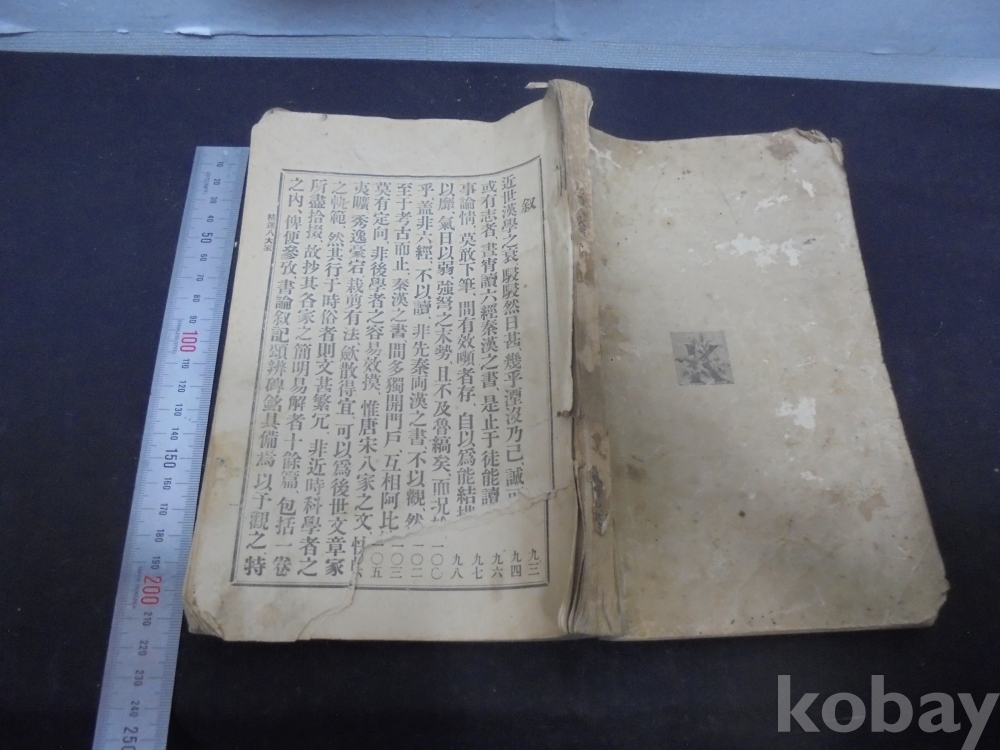 敍
近世漢學之衰、駸駸然日甚、幾乎湮沒乃已、誠
或有志者、晝宵讀六經秦漢之書、是止于徒能讀
事論情、莫敢下筆、間有效嚬者存、自以爲能結構
以靡、氣日以弱、强弩之末勢、且不及魯縞矣、而况
乎、盖非六經、不以讀、非先秦兩漢之書、不以觀、然
至于考古而止、秦漢之書、間多獨開門戶、互相阿比
莫有定向、非後學者之容易效摸、惟唐宋八家之文
夷曠、秀逸豪宕、裁剪有法、歛散得宜、可以爲後世文章家
之軌範、然其行于時俗者則文甚繁冗、非近時科學者之
所盡拾掇、故抄其各家之簡明易解者十餘篇、包括一卷
之內、俾便參攷、書論敍記頌辨碑銘具備焉、以于觀之、特
精選八大家
九三
九四
九六
九七
九八
一〇〇
一〇二
一〇三
一〇五
10
20
30
40
50
60
70
80
90
100
110
120
130
140
150
160
170
180
190
200
210
220
230
240
250
kobay